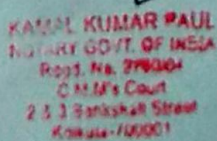 KAMAL KUMAR PAUL
NOTARY GOVT. OF INDIA
Regd. No.
C.M.M's Court
2 & 3 Bankshall Street
Kolkata-700001